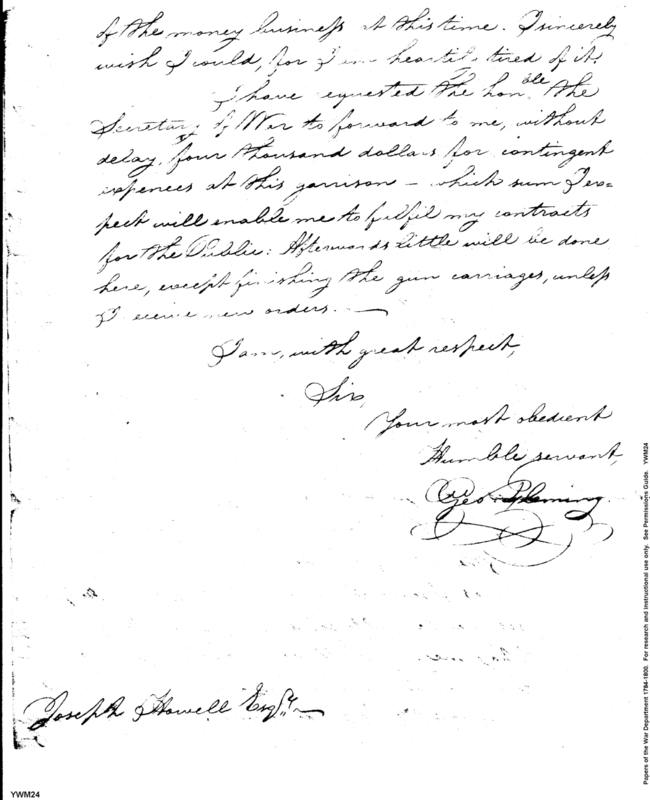 of the money business at this time. I sincerely
wish I could, for I am heartily tired of it.
I have requested the honble the
Secretary of War to forward to me, without
delay, four thousand dollars for contingent
expences at this garrison – which sum I ex=
pect will enable me to fulfil my contracts
for the Public: Afterwards little will be done
here, except finishing the gun carriages, unless
I receive new orders. —
I am, with great respect,
Sir,
Your most obedient
Humble servant,
Geo: Fleming.
Joseph Howell Esqr. —
YWM24
Papers of the War Department 1784-1800. For research and instructional use only. See Permissions Guide. YWM24